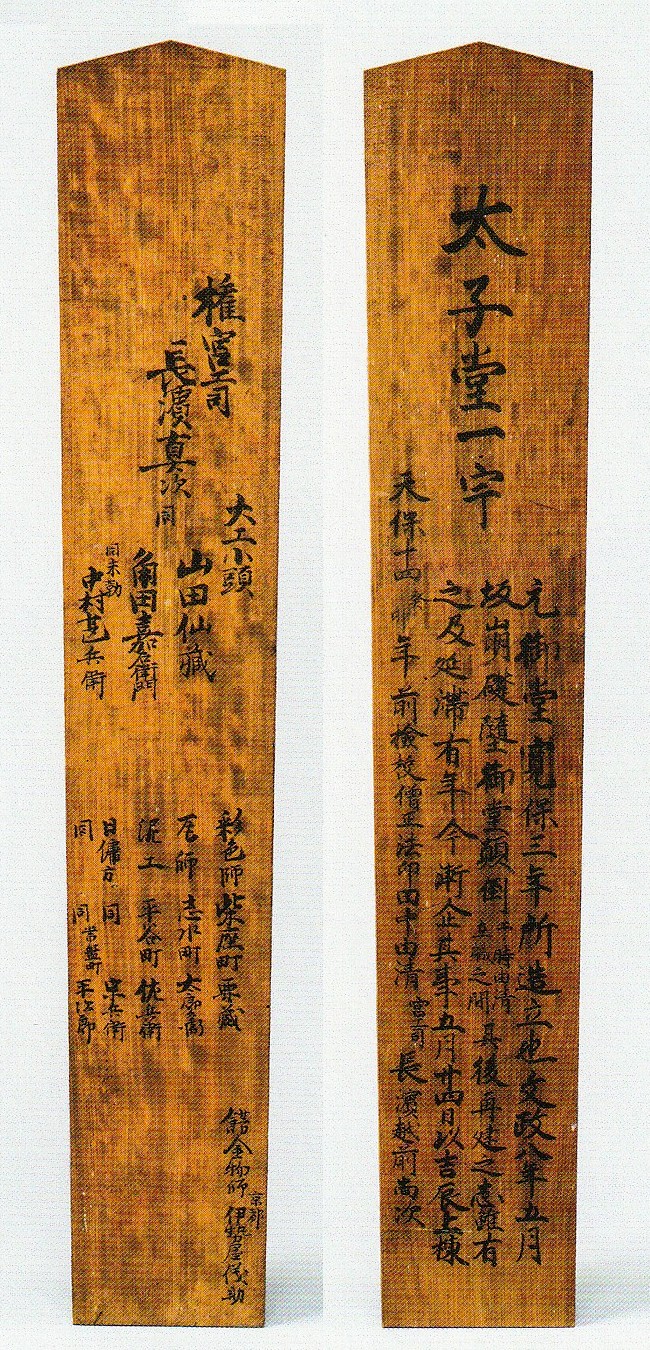 太子堂一宇
元御堂寛保三年新造立也文政八年五月
坂崩礎墜御堂顛倒于時由清在職之間其後再建之志雖有
之及延滞有年今漸企其事五月廿四日以吉辰上棟
天保十四癸卯年前檢校僧正法印田中由清宮司長濱越前尚次
權宮司
長濱真次
大工小頭
山田仙藏
同角田嘉右衛門
同未勤中村甚兵衛
彩色師柴座町要藏
瓦師志水町太郎兵衛
泥工平谷町佐兵衛
日傭方同宗兵衛
同同常盤町平次郎
錺金物師京都伊勢屋儀助